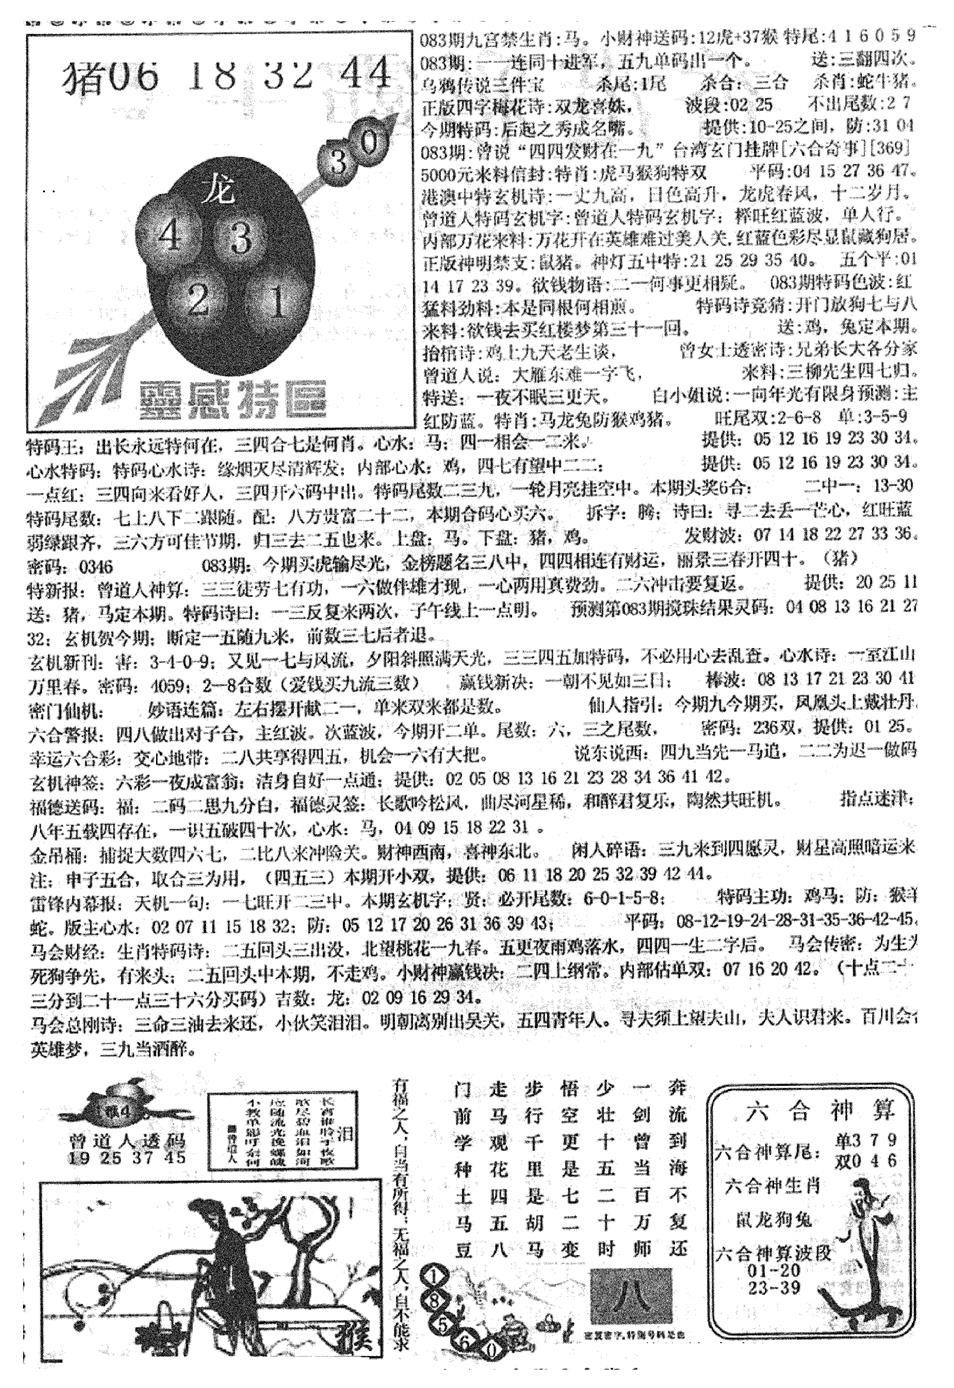 猪06 18 32 44
龙
0
3
4 3
2 1
靈感特區
083期九宫禁生肖:马。小财神送码:12虎+37猴 特尾:4 1 6 0 5 9
083期:一一连同十进军，五九单码出一个。 送:三翻四次。
乌鸦传说三件宝 杀尾:1尾 杀合:三合 杀肖:蛇牛猪。
正版四字梅花诗:双龙喜妹， 波段:02 25 不出尾数:2 7
今期特码:后起之秀成名嘴。 提供:10-25之间，防:31 04
083期:曾说“四四发财在一九”台湾玄门挂牌[六合奇事][369]
5000元来料信封:特肖:虎马猴狗特双 平码:04 15 27 36 47。
港澳中特玄机诗:一丈九高，日色高升，龙虎春风，十二岁月。
曾道人特码玄机字:曾道人特码玄机字；榉旺红蓝波，单人行。
内部万花来料:万花开在英雄难过美人关,红蓝色彩尽显鼠藏狗居。
正版神明禁支:鼠猪。神灯五中特:21 25 29 35 40。 五个平:01
14 17 23 39。欲钱物语:二一何事更相疑。 083期特码色波:红
猛料劲料:本是同根何相煎。 特码诗竞猜:开门放狗七与八
来料:欲钱去买红楼梦第三十一回。 送:鸡，兔定本期。
抬棺诗:鸡上九天老生谈， 曾女士透密诗:兄弟长大各分家
曾道人说：大雁东难一字飞， 来料:三柳先生四七归。
特送：一夜不眠三更天。 白小姐说:一向年光有限身预测:主
红防蓝。特肖:马龙兔防猴鸡猪。 旺尾双:2-6-8 单:3-5-9
特码王；出长永远特何在，三四合七是何肖。心水：马；四一相会一二来。 提供：05 12 16 19 23 30 34。
心水特码：特码心水诗：缘烟灭尽清辉发；内部心水：鸡，四七有望中二二； 提供：05 12 16 19 23 30 34。
一点红：三四向来看好人，三四开六码中出。特码尾数二三九，一轮月亮挂空中。本期头奖6合： 二中一：13-30
特码尾数：七上八下二跟随。配：八方贵富二十二，本期合码心买六。 拆字：腾；诗曰：寻二去丢一芒心，红旺蓝
弱绿跟齐，三六方可佳节期，归三去二五也来。上盘：马。下盘：猪，鸡。 发财波：07 14 18 22 27 33 36。
密码：0346 083期：今期买虎输尽光，金榜题名三八中，四四相连有财运，丽景三春开四十。（猪）
特新报：曾道人神算：三三徒劳七有功，一六做伴雄才现，一心两用真费劲。二六冲击要复返。 提供：20 25 11
送：猪，马定本期。特码诗曰：一三反复来两次，子午线上一点明。 预测第083期搅珠结果灵码：04 08 13 16 21 27
32；玄机贺今期；断定一五随九来，前数三七后者退。
玄机新刊：害：3-4-0-9；又见一七与风流，夕阳斜照满天光，三三四五加特码，不必用心去乱查。心水诗：一室江山
万里春。密码：4059；2--8合数（爱钱买九流三数） 赢钱新决：一朝不见如三日； 棒波：08 13 17 21 23 30 41
密门仙机： 妙语连篇：左右摆开献二一，单来双来都是数。 仙人指引：今期九今期买，凤凰头上戴牡丹。
六合警报：四八做出对子合，主红波。次蓝波，今期开二单。尾数：六，三之尾数， 密码：236双，提供：01 25。
幸运六合彩：交心地带：二八共享得四五，机会一六有大把。 说东说西：四九当先一马追，二二为迟一做码
玄机神签：六彩一夜成富翁；洁身自好一点通；提供：02 05 08 13 16 21 23 28 34 36 41 42。
福德送码：福：二码二思九分白，福德灵签：长歌吟松风，曲尽河星稀，和醉君复乐，陶然共旺机。 指点迷津：
八年五载四存在，一识五破四十次，心水：马，04 09 15 18 22 31 。
金吊桶：捕捉大数四六七，二比八来冲险关。财神西南，喜神东北。 闲人碎语：三九来到四愿灵，财星高照暗运来
注：申子五合，取合三为用，（四五三）本期开小双，提供：06 11 18 20 25 32 39 42 44。
雷锋内幕报：天机一句：一七旺开二三中。本期玄机字：贤：必开尾数：6-0-1-5-8； 特码主功：鸡马；防：猴羊
蛇。版主心水：02 07 11 15 18 32；防：05 12 17 20 26 31 36 39 43； 平码：08-12-19-24-28-31-35-36-42-45。
马会财经：生肖特码诗：二五回头三出没，北望桃花一九春。五更夜雨鸡落水，四四一生二字后。 马会传密：为生为
死狗争先，有来头；二五回头中本期，不走鸡。小财神赢钱决：二四上纲常。内部估单双：07 16 20 42。（十点二十
三分到二十一点三十六分买码）吉数：龙：02 09 16 29 34。
马会总刚诗：三命三油去来还，小伙笑泪泪。明朝离别出吴关，五四青年人。寻夫须上望夫山，夫人识君来。百川会合
英雄梦，三九当酒醉。
曾道人透码
19 25 37 45
泪
曾道人
猴
有福之人，自当有所得；无福之人，自不能求
奔流到海不复还
一剑曾当百万师
少壮十五二十时
悟空更是七二变
步行千里是胡马
走马观花四五八
门前学种土马豆
1
8
5
6
0
八
密复密字,特别号码是也
六合神算
六合神算尾：
单3 7 9
双0 4 6
六合神生肖
鼠龙狗兔
六合神算波段
01-20
23-39